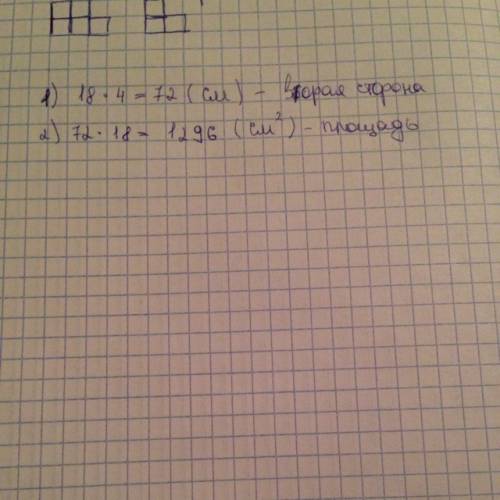 1) 18 · 4 = 72 (см) - вторая сторона
2) 72 · 18 = 1296 (см²) - площадь